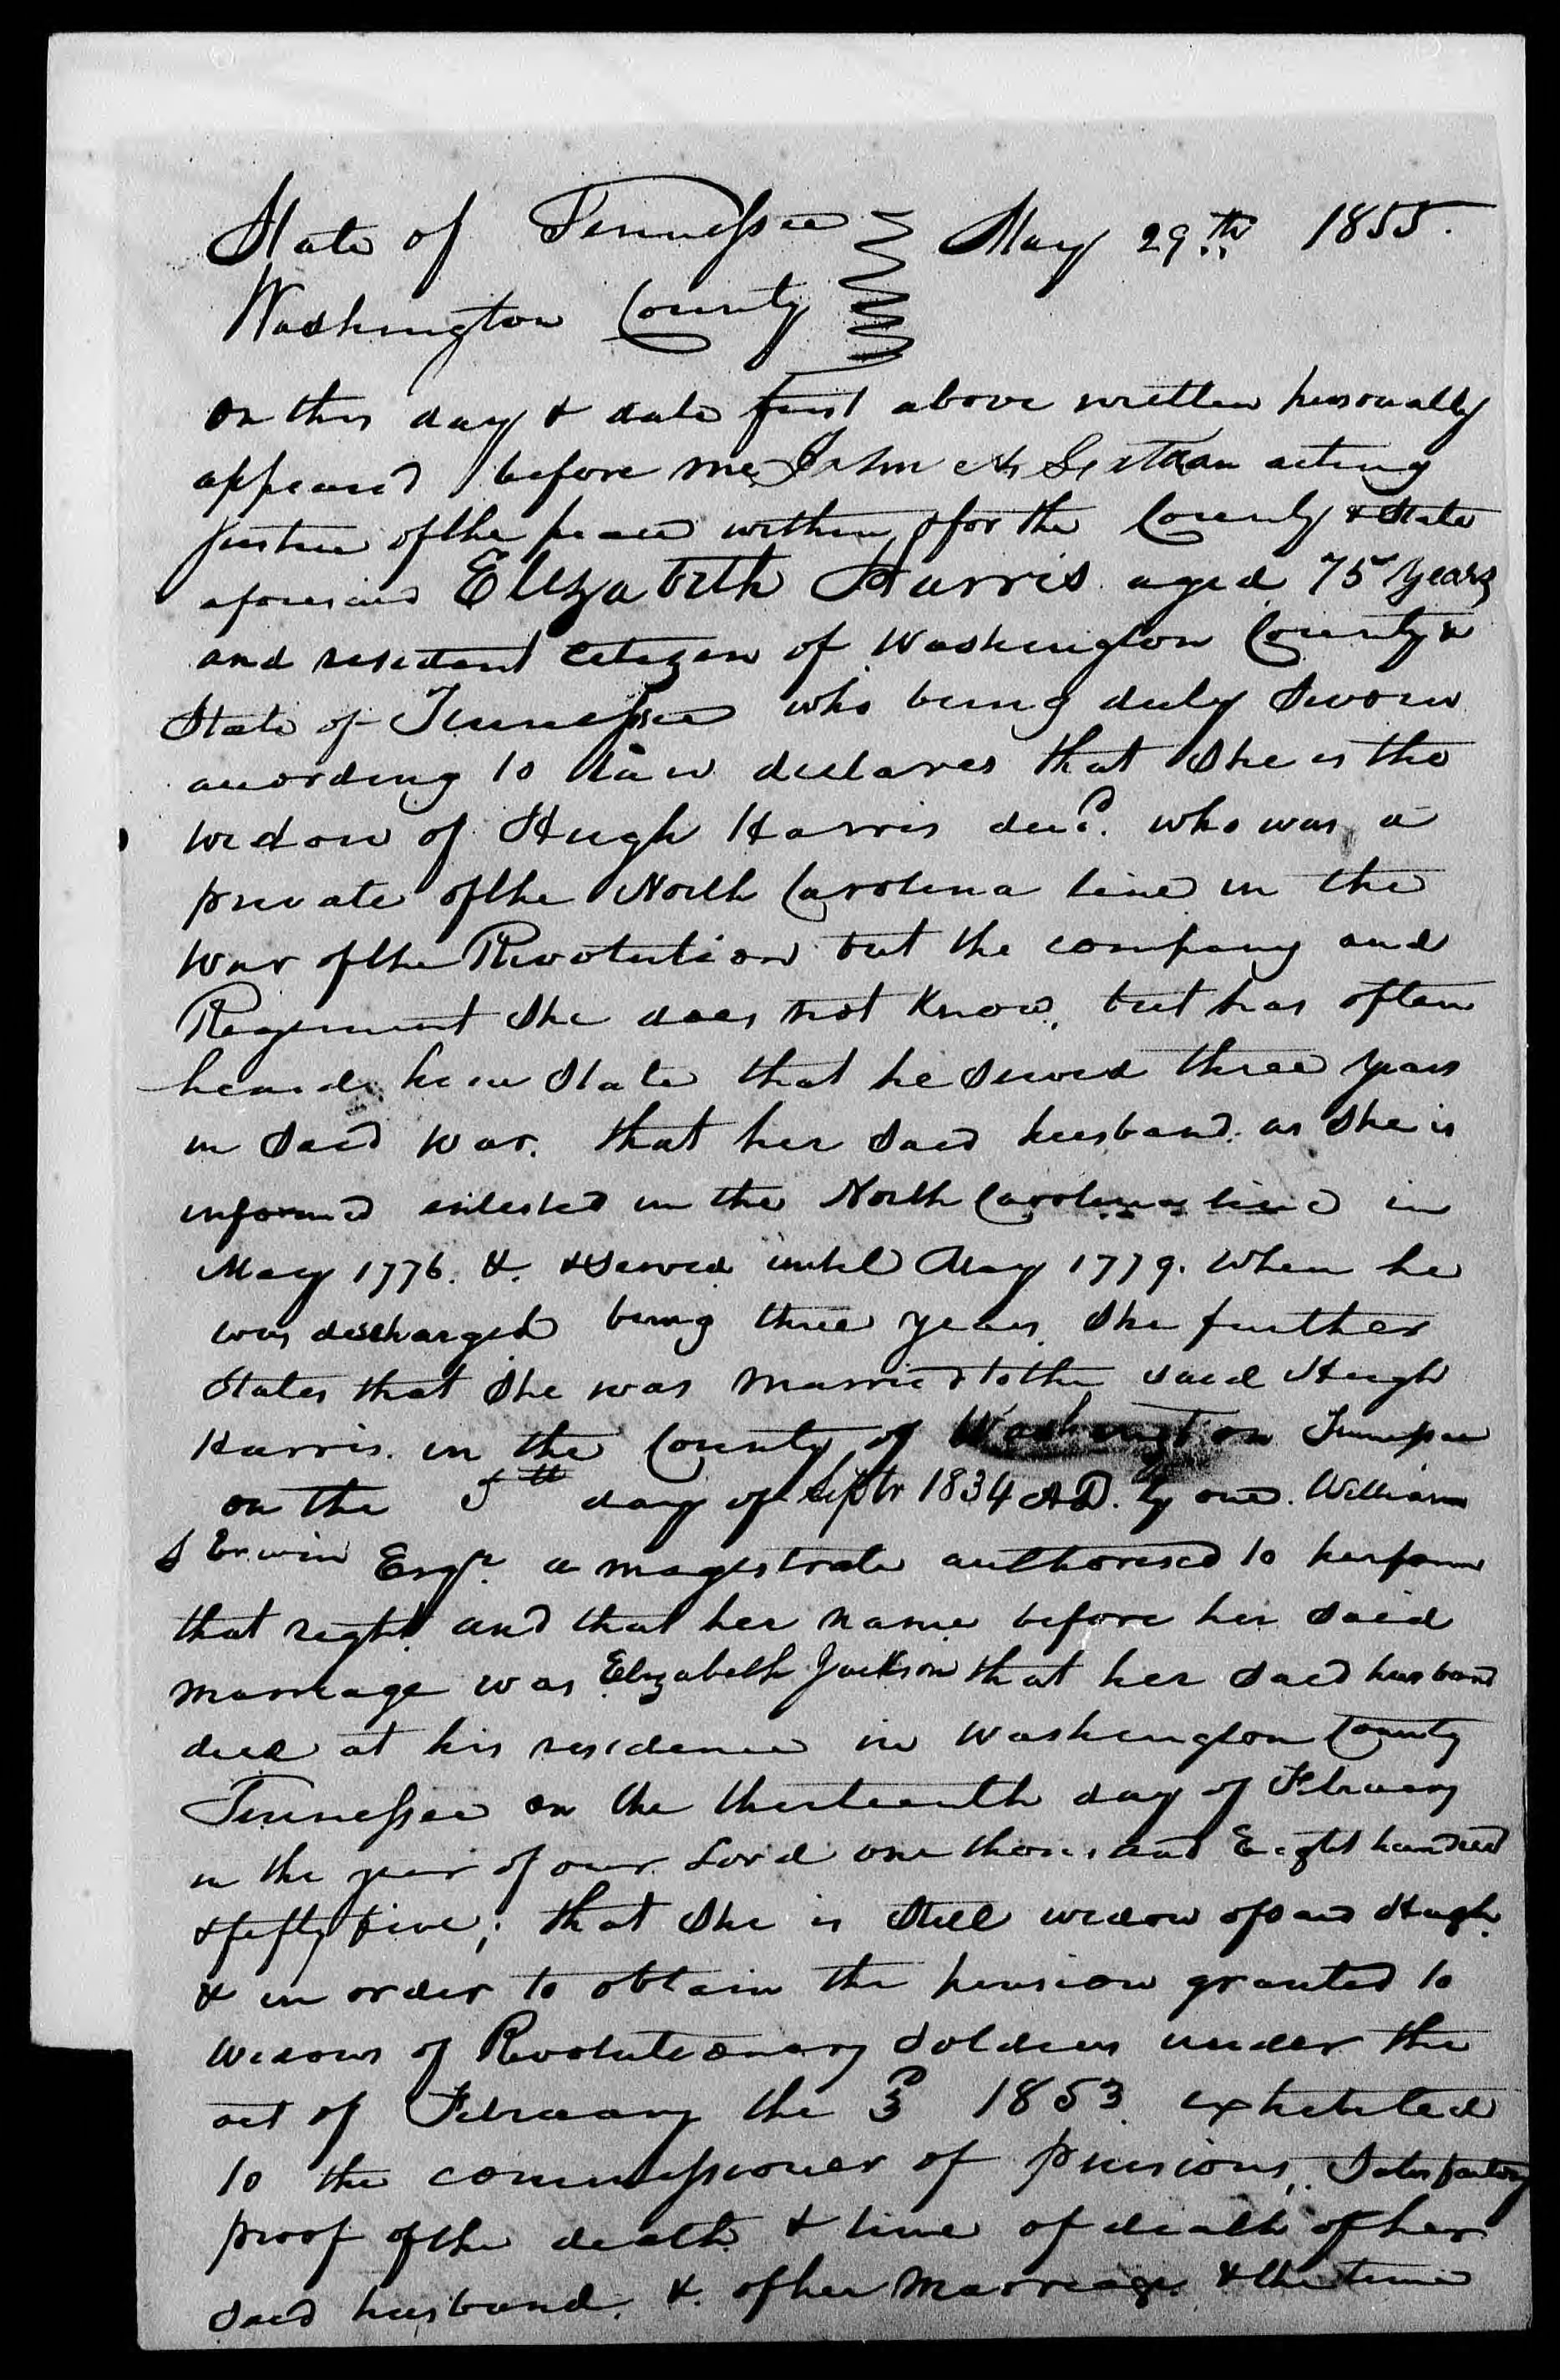 State of Tennessee May 29th 1855.
Washington County
On this day & date first above written personally
appeared before me John acting
Justice of the peace within & for the County & State
aforesaid Elizabeth Harris aged 75 years
and resident citizen of Washington County &
State of Tennessee who being duly sworn
according to law declares that she is the
widow of Hugh Harris decd. who was a
private of the North Carolina line in the
War of the Revolution but the company and
Regiment she does not know, but has often
heard him state that he served three years
in said war. that her said husband as she is
informed enlisted in the North Carolina line in
May 1776. &. & served until May 1779. when he
was discharged being three years she further
states that she was married to the said Hugh
Harris in the County of Washington Tennessee
on the 5th day of Septr 1834 AD. by one William
S Erwin Esqr. a magistrate authorised to perform
that right and that her name before her said
marriage was Elizabeth Jackson that her said husband
died at his residence in Washington County
Tennessee on the thirteenth day of February
in the year of our Lord one thousand Eight hundred
& fifty five; that she is still widow of said Hugh.
& in order to obtain the pension granted to
widows of Revolutionary soldiers under the
act of February the 3d 1853 exhibited
to the commissioner of pensions, Satisfactory
proof of the death & time of death of her
said husband. &. of her marriage & the time